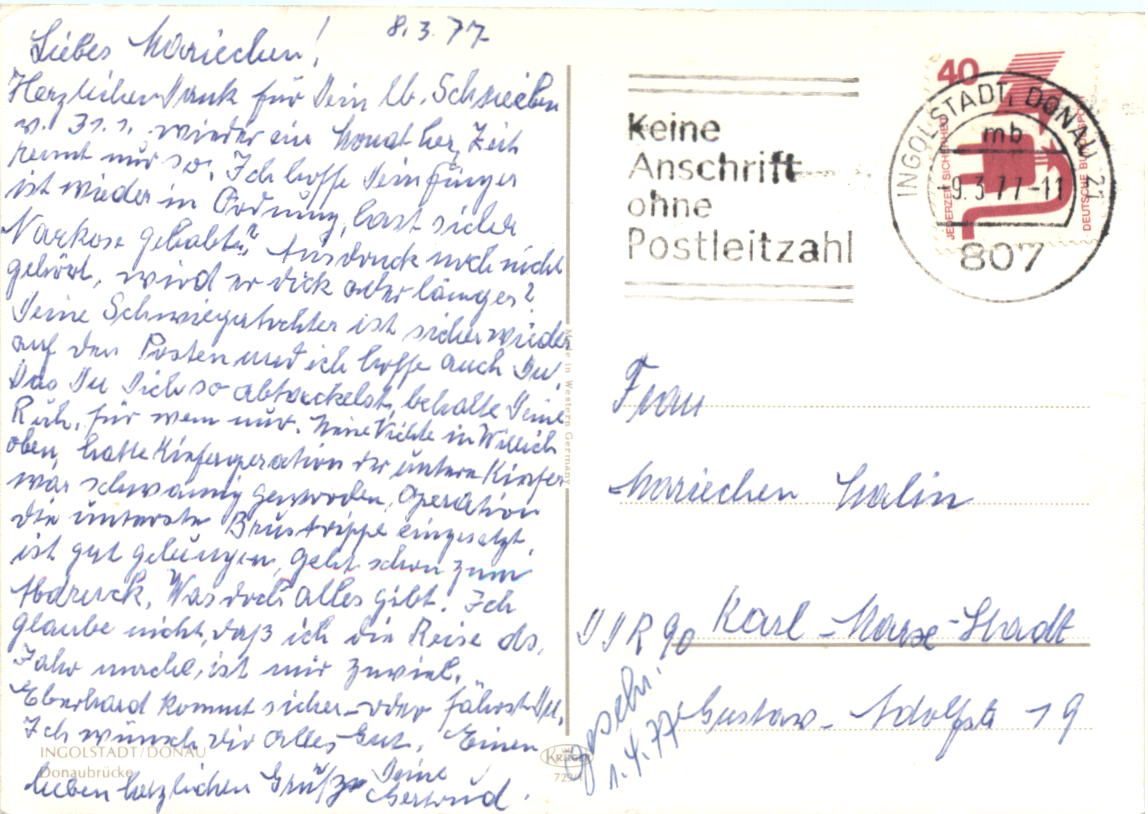 8.3.77
Liebes Mariechen!
Herzlichen Dank für Dein lb. Schreiben
v. 31.1. wieder ein Monat her, Zeit
rennt nur so. Ich hoffe Dein Finger
ist wieder in Ordnung, hast sicher
Narkose gehabt? Ausdruck noch nicht
gehört, wird er dick oder länger?
Deine Schwiegertochter ist sicher wieder
auf den Posten und ich hoffe auch Du.
Das Du Dich so abtackelst, behalte Deine
Ruh, für wem nur. Meine Nichte in Willich
oben, hatte Kieferoperation der untere Kiefer
war schwammig geworden, Operation
die unterste Brustrippe eingesetzt,
ist gut gelungen, geht schon zum
Abdruck. Was doch alles gibt. Ich
glaube nicht, daß ich die Reise ds.
Jahr mache, ist mir zuviel.
Eberhard kommt sicher - oder fährst Du.
Ich wünsch Dir alles Gut. Einen
lieben herzlichen Gruß Deine
Gertrud.
INGOLSTADT/DONAU
Donaubrücke
Made in Western Germany
KRÜGER
Keine
Anschrift
ohne
Postleitzahl
40
JEDERZEIT SICHERHEIT
DEUTSCHE BUNDESPOST
INGOLSTADT, DONAU 21
mb
-9.3.77-11
807
Frau
Mariechen Halin
DDR 90 Karl-Marx-Stadt
Gustav-Adolfstr 19
Geschr.
1.4.77